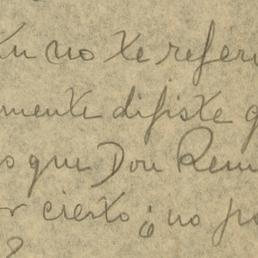 tu no te referi
mente dijiste q
o que Don Rem
r cierto ¿no po